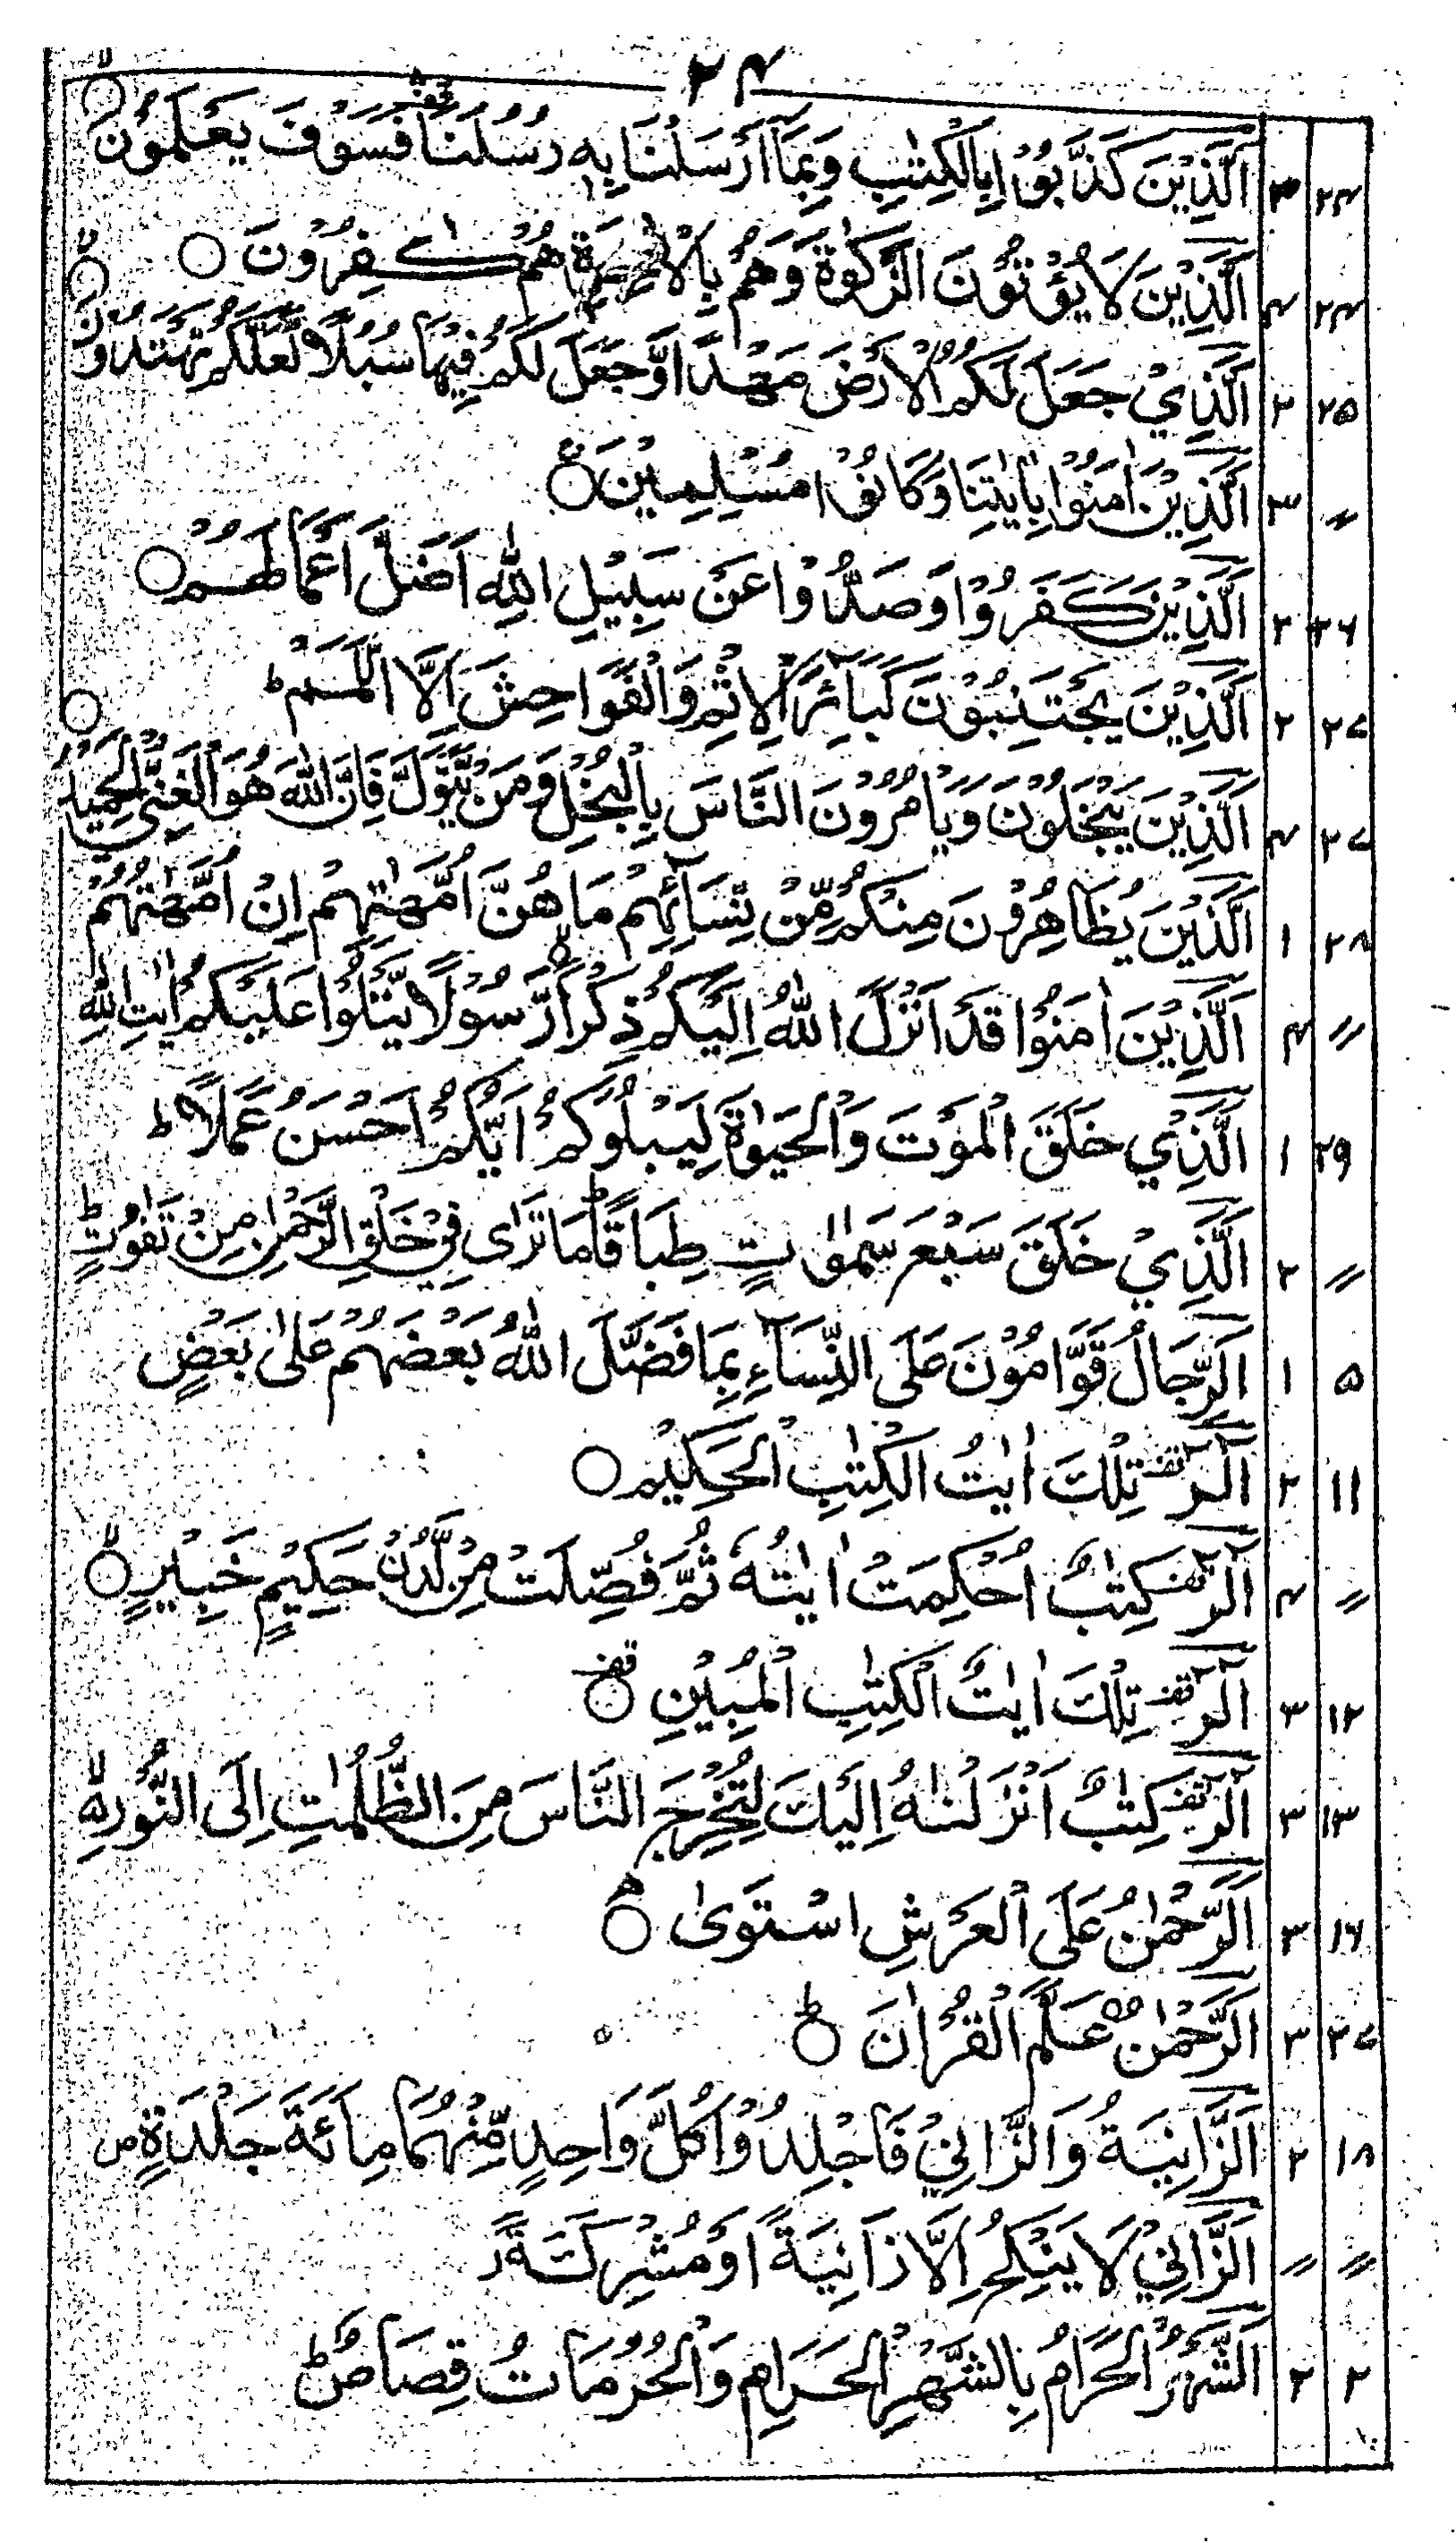 ۲۴
۲۴ ۳ اَلَّذِيْنَ كَذَّبُوْا بِالْكِتٰبِ وَبِمَآ اَرْسَلْنَا بِهٖ رُسُلَنَا ۛ فَسَوْفَ يَعْلَمُوْنَ ۙ
۲۴ ۴ اَلَّذِيْنَ لَا يُؤْتُوْنَ الزَّكٰوةَ وَهُمْ بِالْاٰخِرَةِ هُمْ كٰفِرُوْنَ ○
۲۵ ۲ اَلَّذِيْ جَعَلَ لَكُمُ الْاَرْضَ مَهْدًا وَّجَعَلَ لَكُمْ فِيْهَا سُبُلًا لَّعَلَّكُمْ تَهْتَدُوْنَ ۙ
〃 ۳ اَلَّذِيْنَ اٰمَنُوْا بِاٰيٰتِنَا وَكَانُوْا مُسْلِمِيْنَ ○
۲۶ ۲ اَلَّذِيْنَ كَفَرُوْا وَصَدُّوْا عَنْ سَبِيْلِ اللّٰهِ اَضَلَّ اَعْمَالَهُمْ ○
۲۷ ۲ اَلَّذِيْنَ يَجْتَنِبُوْنَ كَبٰٓئِرَ الْاِثْمِ وَالْفَوَاحِشَ اِلَّا اللَّمَمَ ؕ
۲۷ ۴ اَلَّذِيْنَ يَبْخَلُوْنَ وَيَاْمُرُوْنَ النَّاسَ بِالْبُخْلِ وَمَنْ يَّتَوَلَّ فَاِنَّ اللّٰهَ هُوَ الْغَنِيُّ الْحَمِيْدُ ○
۲۸ ۱ اَلَّذِيْنَ يُظَاهِرُوْنَ مِنْكُمْ مِّنْ نِّسَآئِهِمْ مَا هُنَّ اُمَّهٰتِهِمْ اِنْ اُمَّهٰتُهُمْ
〃 ۴ اَلَّذِيْنَ اٰمَنُوْا قَدْ اَنْزَلَ اللّٰهُ اِلَيْكُمْ ذِكْرًا ۙ رَّسُوْلًا يَّتْلُوْا عَلَيْكُمْ اٰيٰتِ اللّٰهِ
۲۹ ۱ اَلَّذِيْ خَلَقَ الْمَوْتَ وَالْحَيٰوةَ لِيَبْلُوَكُمْ اَيُّكُمْ اَحْسَنُ عَمَلًا ؕ
〃 ۲ اَلَّذِيْ خَلَقَ سَبْعَ سَمٰوٰتٍ طِبَاقًا ؕ مَا تَرٰى فِيْ خَلْقِ الرَّحْمٰنِ مِنْ تَفٰوُتٍ ؕ
۵ ۱ اَلرِّجَالُ قَوَّامُوْنَ عَلَى النِّسَآءِ بِمَا فَضَّلَ اللّٰهُ بَعْضَهُمْ عَلٰى بَعْضٍ
۱۱ ۲ الٓرٰ قف تِلْكَ اٰيٰتُ الْكِتٰبِ الْحَكِيْمِ ○
〃 ۴ الٓرٰ قف كِتٰبٌ اُحْكِمَتْ اٰيٰتُهٗ ثُمَّ فُصِّلَتْ مِنْ لَّدُنْ حَكِيْمٍ خَبِيْرٍ ۙ
۱۲ ۳ الٓرٰ قف تِلْكَ اٰيٰتُ الْكِتٰبِ الْمُبِيْنِ ○ قف
۱۳ ۳ الٓرٰ قف كِتٰبٌ اَنْزَلْنٰهُ اِلَيْكَ لِتُخْرِجَ النَّاسَ مِنَ الظُّلُمٰتِ اِلَى النُّوْرِ ۙ
۱۶ ۳ اَلرَّحْمٰنُ عَلَى الْعَرْشِ اسْتَوٰى ○
۲۷ ۳ اَلرَّحْمٰنُ ۙ عَلَّمَ الْقُرْاٰنَ ○ ؕ
۱۸ ۲ اَلزَّانِيَةُ وَالزَّانِيْ فَاجْلِدُوْا كُلَّ وَاحِدٍ مِّنْهُمَا مِائَةَ جَلْدَةٍ ۪
〃 〃 اَلزَّانِيْ لَا يَنْكِحُ اِلَّا زَانِيَةً اَوْ مُشْرِكَةً ز
۲ ۲ اَلشَّهْرُ الْحَرَامُ بِالشَّهْرِ الْحَرَامِ وَالْحُرُمَاتُ قِصَاصٌ ؕ